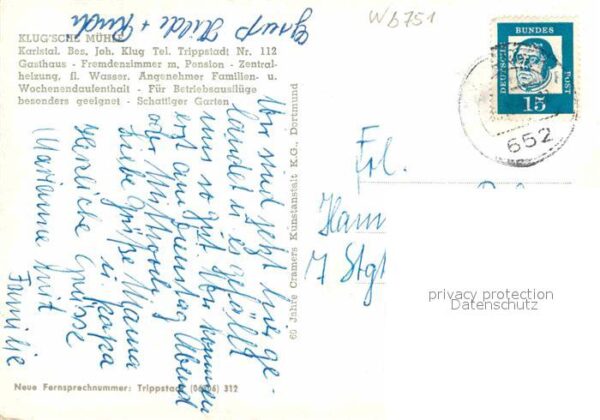 KLUG'SCHE MÜHLE
Karlstal. Bes. Joh. Klug Tel. Trippstadt Nr. 112
Gasthaus - Fremdenzimmer m. Pension - Zentral-
heizung, fl. Wasser. Angenehmer Familien- u.
Wochenendaufenthalt - Für Betriebsausflüge
besonders geeignet - Schattiger Garten
Wir sind jetzt hier ge-
landet u. es gefällt
uns so gut. Wir kommen
erst am Dienstag Abend
oder Mittwoch
Liebe Grüße Mama
u. Papa
Herzliche Grüsse
Marianne mit
Familie
Gruß Hilde + Rudi
Neue Fernsprechnummer: Trippstadt (06306) 312
60 Jahre Cramers Kunstanstalt K.G., Dortmund
Wb751
DEUTSCHE BUNDESPOST
15
652
Frl.
Ham
7 Stgt
privacy protection
Datenschutz